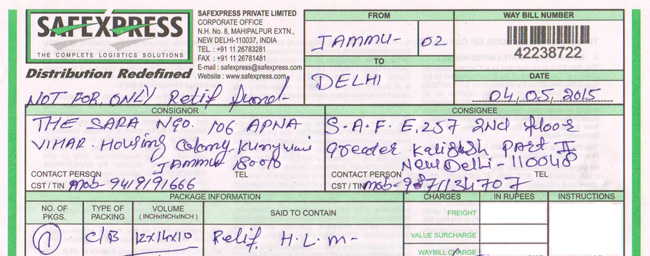 SAFEXPRESS
THE COMPLETE LOGISTICS SOLUTIONS
Distribution Redefined
SAFEXPRESS PRIVATE LIMITED
CORPORATE OFFICE
N.H. No. 8, MAHIPALPUR EXTN.,
NEW DELHI-110037, INDIA
TEL. : +91 11 26783281
FAX : +91 11 26781481
E-mail : safexpress@safexpress.com
Website : www.safexpress.com
FROM
JAMMU- 02
TO
DELHI
WAY BILL NUMBER
42238722
DATE
04.05.2015
NOT FOR ONLY Relif fund-
CONSIGNOR
THE SARA NGO. 106 APNA
VIHAR. Housing Colony Kunjwani
JAMMU 180010
CONTACT PERSON TEL
CST / TIN mob- 9419191666
CONSIGNEE
S.A.F E.257 2nd floor
Greater Kailash Part II
New Delhi- 110048
CONTACT PERSON TEL
CST / TIN mob-
PACKAGE INFORMATION
NO. OF PKGS.
TYPE OF PACKING
VOLUME (INCH×INCH×INCH)
SAID TO CONTAIN
CHARGES
IN RUPEES
INSTRUCTIONS
1 C/B 12x14x10 Relif. H.L.M-
FREIGHT
VALUE SURCHARGE
WAYBILL CHARGE